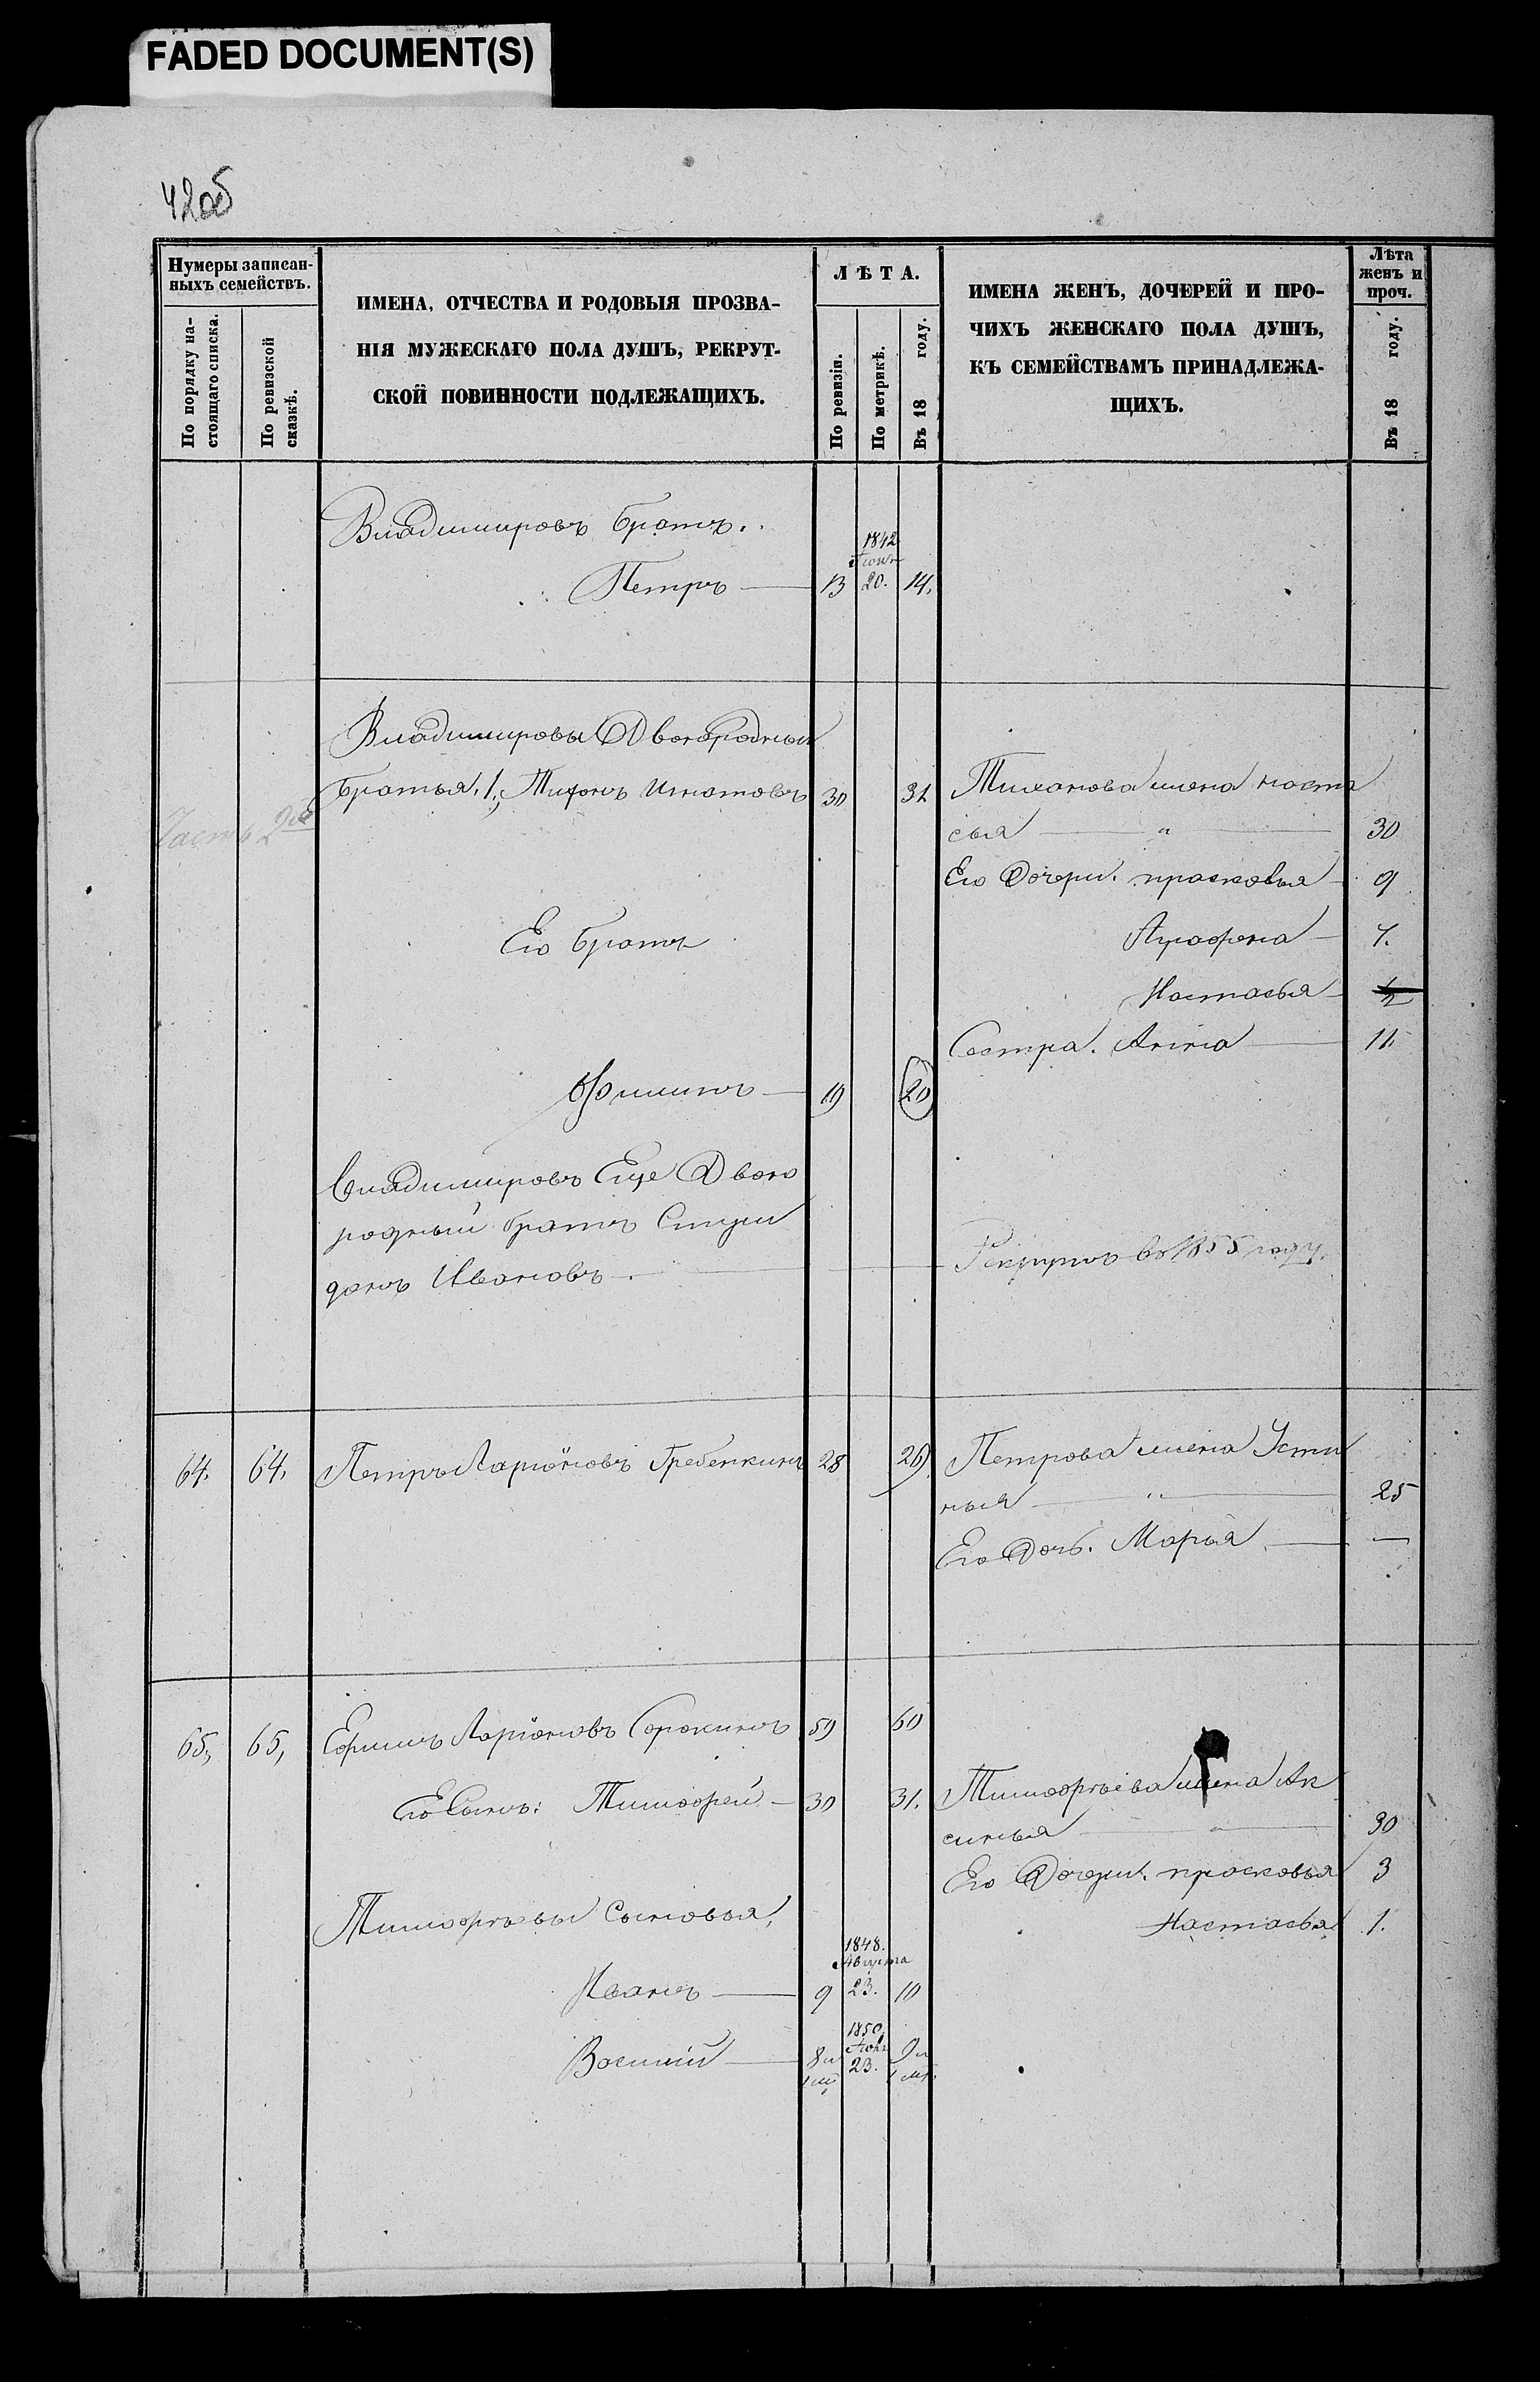 FADED DOCUMENT(S)
42об
Нумеры записан-
ныхъ семействъ.
По порядку на-
стоящаго списка.
По ревизской
сказкѣ.
ИМЕНА, ОТЧЕСТВА И РОДОВЫЯ ПРОЗВА-
НІЯ МУЖЕСКАГО ПОЛА ДУШЪ, РЕКРУТ-
СКОЙ ПОВИННОСТИ ПОДЛЕЖАЩИХЪ.
ЛѢТА.
По ревизіи.
По метрикѣ.
Въ 18 году.
ИМЕНА ЖЕНЪ, ДОЧЕРЕЙ И ПРО-
ЧИХЪ ЖЕНСКАГО ПОЛА ДУШЪ,
КЪ СЕМЕЙСТВАМЪ ПРИНАДЛЕЖА-
ЩИХЪ.
Лѣта
женъ и
проч.
Въ 18 году.
Владимировъ братъ.
1842
Петръ 13 20. 14.
Владимировы Двоюродныи
братья, 1, Тихонъ Игнатовъ 30 31 Тиханова жена наста
Часть 2я
сья " 30
Его Дочери. прасковья 9
Его братъ Аграфена 7.
Настасья ½
Сестра. Анна 11.
Филипъ 19 20
Владимировъ Еще Двою
родный братъ Спири
донъ Ивановъ. Рекрутъ в 1855 году.
64. 64. Петръ Ларіоновъ Гребенкинъ 28 29 Петрова жена Усти
нья " 25
Его Дочь. Марья —
65, 65, Ефимъ Ларіоновъ Сорокинъ 59 60
Его Сынъ: Тимофей 30 31. Тимофѣева жена Ак
синья " 30
Его Дочери. прасковья 3
Тимофѣевы Сыновья, Настасья 1.
1848.
Августа
Иванъ 9 23. 10
1850
Василій 8 и 23. 9 и
1 м 1 м.